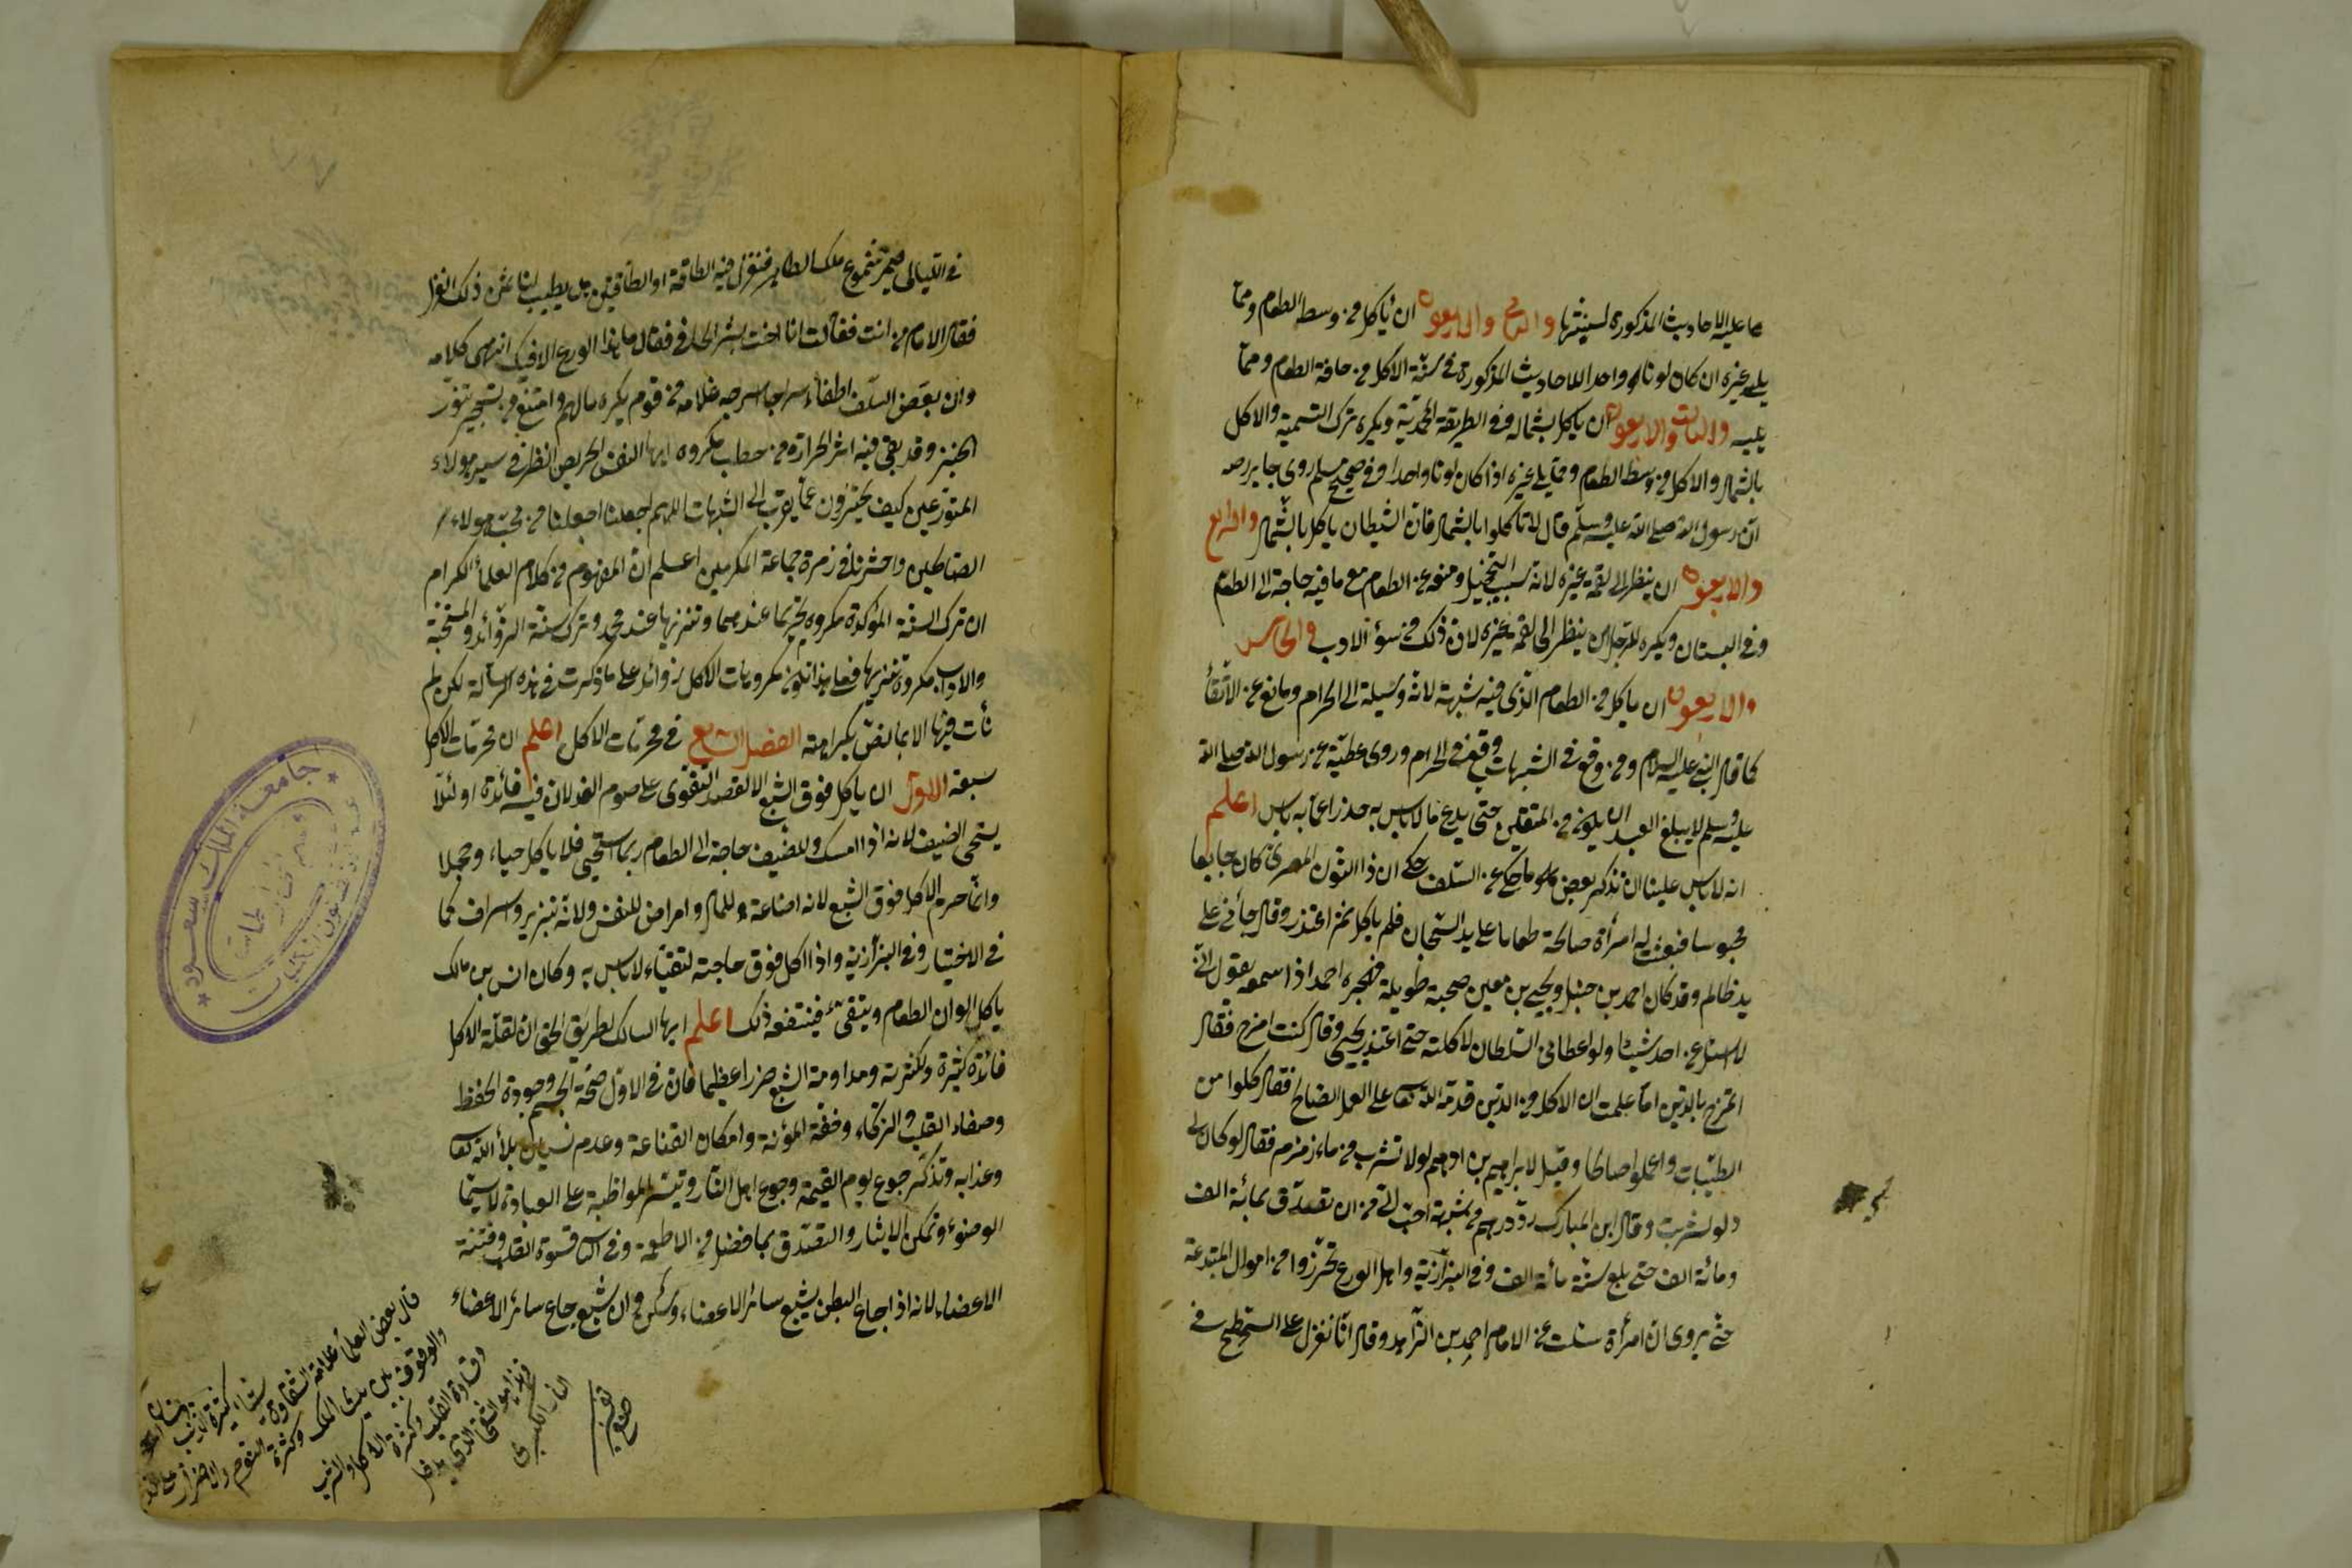 ما عليه الاحاديث المذكورة لسنيتها والثاني والاربعون ان يأكل من وسط الطعام ومما
يلي غيره ان كان لونا واحدا للاحاديث المذكورة في سنة الاكل من حافة الطعام ومما
يليه والثالث والاربعون ان يأكل بشماله وفي الطريقة المحمدية ويكره ترك التسمية والاكل
بالشمال والاكل من وسط الطعام ومما يلي غيره اذا كان لونا واحدا وفي صحيح مسلم روى جابر رضه
ان رسول الله صلى الله عليه وسلم قال لا تأكلوا بالشمال فان الشيطان يأكل بالشمال والرابع
والاربعون ان ينظر الى لقمة غيره لانه سبب التخجيل ومنعه عن الطعام مع ما فيه حاجة الى الطعام
وفي البستان ويكره للرجل ان ينظر الى لقمة غيره لان ذلك من سوء الادب والخامس
والاربعون ان يأكل من الطعام الذي فيه شبهة لانه وسيلة الى الحرام ومانع عن الاتقاء
كما قال النبي عليه السلام ومن وقع في الشبهات وقع في الحرام وروى عطية عن رسول الله صلى الله
عليه وسلم لا يبلغ العبد ان يكون من المتقين حتى يدع ما لا باس به حذرا عما به باس اعلم
انه لا باس علينا ان نذكر بعض ما حكي عن السلف حكي ان ذا النون المصري كان جايعا
محبوسا فبعثت له امرأة صالحة طعاما على يد السجان فلم يأكل ثم اعتذر وقال جاءني على
يد ظالم وقد كان احمد بن حنبل ويحيى بن معين صحبة طويلة فهجره احمد اذا سمعه يقول اني
لا اسئل عن احد شيئا ولو اعطاني السلطان لاكلته حتى اعتذر يحيى وقال كنت امزح فقال
اتمزح بالدين اما علمت ان الاكل من الدين قدمه الله تعا على العمل الصالح فقال كلوا من
الطيبات واعملوا صالحا وقيل لابراهيم بن ادهم لولا تشرب من ماء زمزم فقال لو كان لي
دلو لشربت وقال ابن المبارك رد درهم من شبهة احب الي من ان تصدق بمائة الف
ومائة الف حتى بلغ ستة مائة الف وفي البزازية واهل الورع تحرزوا من اموال المبتدعة
حتى يروى ان امرأة سئلت عن الامام احمد بن الزاهد وقال انا نغزل على السطح في
في الليالي فيمر شموع ملك الظاهر فنغزل فيه الطاقة او الطاقتين هل يطيب لنا ثمن ذلك الغزل
فقال الامام من انت فقالت انا اخت بشر الحافي فقال ما هذا الورع الا فيك انتهى كلامه
وان بعض السلف اطفاء سراجا اسرجه غلامه من قوم يكره مالهم وامتنع من تسجير تنور
الخبز وقد بقي فيه اثر الحرارة من حطب مكروه ايها النفس الحريص انظر في سير هؤلاء
المتورعين كيف يحترزون عما يقرب الى الشبهات اللهم اجعلنا اجعلنا من محب هؤلاء
الصالحين واحشرنا في زمرة جماعة المكرمين اعلم ان المفهوم من كلام العلماء الكرام
ان ترك السنة المؤكدة مكروه تحريما عندهما وتنزيها عند محمد وترك سنة الزوائد والمستحبة
والاداب مكروه تنزيها فعلى هذا تكون مكروهات الاكل زوائد على ما ذكرت في هذه الرسالة لكن لم
نأت فيها الا بما نص بكراهته الفصل السابع في محرمات الاكل اعلم ان محرمات الاكل
سبعة الاول ان يأكل فوق الشبع الا لقصد التقوى على صوم الغد لان فيه فائدة او لئلا
يستحي الضيف لانه اذا امسك وللضيف حاجة الى الطعام ربما استحيى فلا يأكل حياء وخجلا
وانما حرم الاكل فوق الشبع لانه اضاعة للمال وامراض للنفس ولانه تبذير واسراف كما
في الاختيار وفي البزازية واذا اكل فوق حاجته لتقياء لا باس به وكان انس بن مالك
يأكل الوان الطعام ويتقيء فينتفعه ذلك اعلم ايها السالك لطريق الحق ان لقلة الاكل
فائدة كثيرة ولكثرته ومداومة الشبع ضررا عظيما فان في الاول صحة الجسم وجودة الحفظ
وصفاء القلب والزكاء وخفة المؤنة وامكان القناعة وعدم نسيان بلاء الله تعا
وعذابه وتذكر جوع يوم القيمة وجوع اهل النار وتيسر المواظبة على العبادة لا سيما
الوضوء وتمكن الايثار والتصدق بما فضل من الاطعمة وفي الثاني قسوة القلب وفتنة
الاعضاء لانه اذا جاع البطن يشبع سائر الاعضاء وسكن وان شبع جاع سائر الاعضاء
قال بعض العلماء علامة الشقاوة
والوقوف بين يدي الملك وكثرة النوم
وقساوة القلب وكثرة الاكل والشرب
النار الكبرى
جامعة الملك سعود